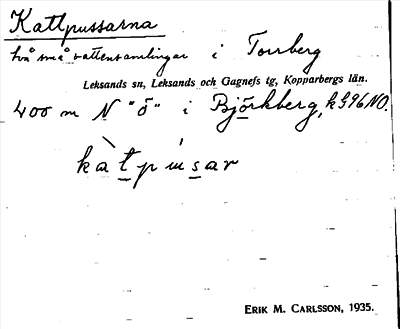 Kattpussarna
två små vattensamlingar i Torrberg
Leksands sn, Leksands och Gagnefs tg, Kopparbergs län.
400 m N "ö" i Björkberg, k 596 NO.
kàtpúsar
ERIK M. CARLSSON, 1935.